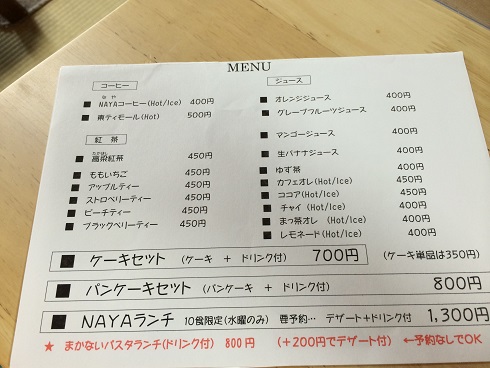 MENU
コーヒー
なや
■ NAYAコーヒー(Hot/Ice) 400円
■ 東ティモール(Hot) 500円
紅 茶
たかはし
■ 高梁紅茶 450円
■ ももいちご 450円
■ アップルティー 450円
■ ストロベリーティー 450円
■ ピーチティー 450円
■ ブラックベリーティー 450円
ジュース
■ オレンジジュース 400円
■ グレープフルーツジュース 400円
■ マンゴージュース 400円
■ 生バナナジュース 400円
■ ゆず茶 400円
■ カフェオレ(Hot/Ice) 450円
■ ココア(Hot/Ice) 450円
■ チャイ (Hot/Ice) 400円
■ まっ茶オレ (Hot/Ice) 400円
■ レモネード(Hot/Ice) 400円
■ ケーキセット (ケーキ + ドリンク付) 700円 (ケーキ単品は350円)
■ パンケーキセット (パンケーキ + ドリンク付) 800円
■ NAYAランチ 10食限定(水曜のみ) 要予約… デザート+ドリンク付 1,300円
★ まかないパスタランチ(ドリンク付) 800円 (+200円でデザート付) ←予約なしでOK